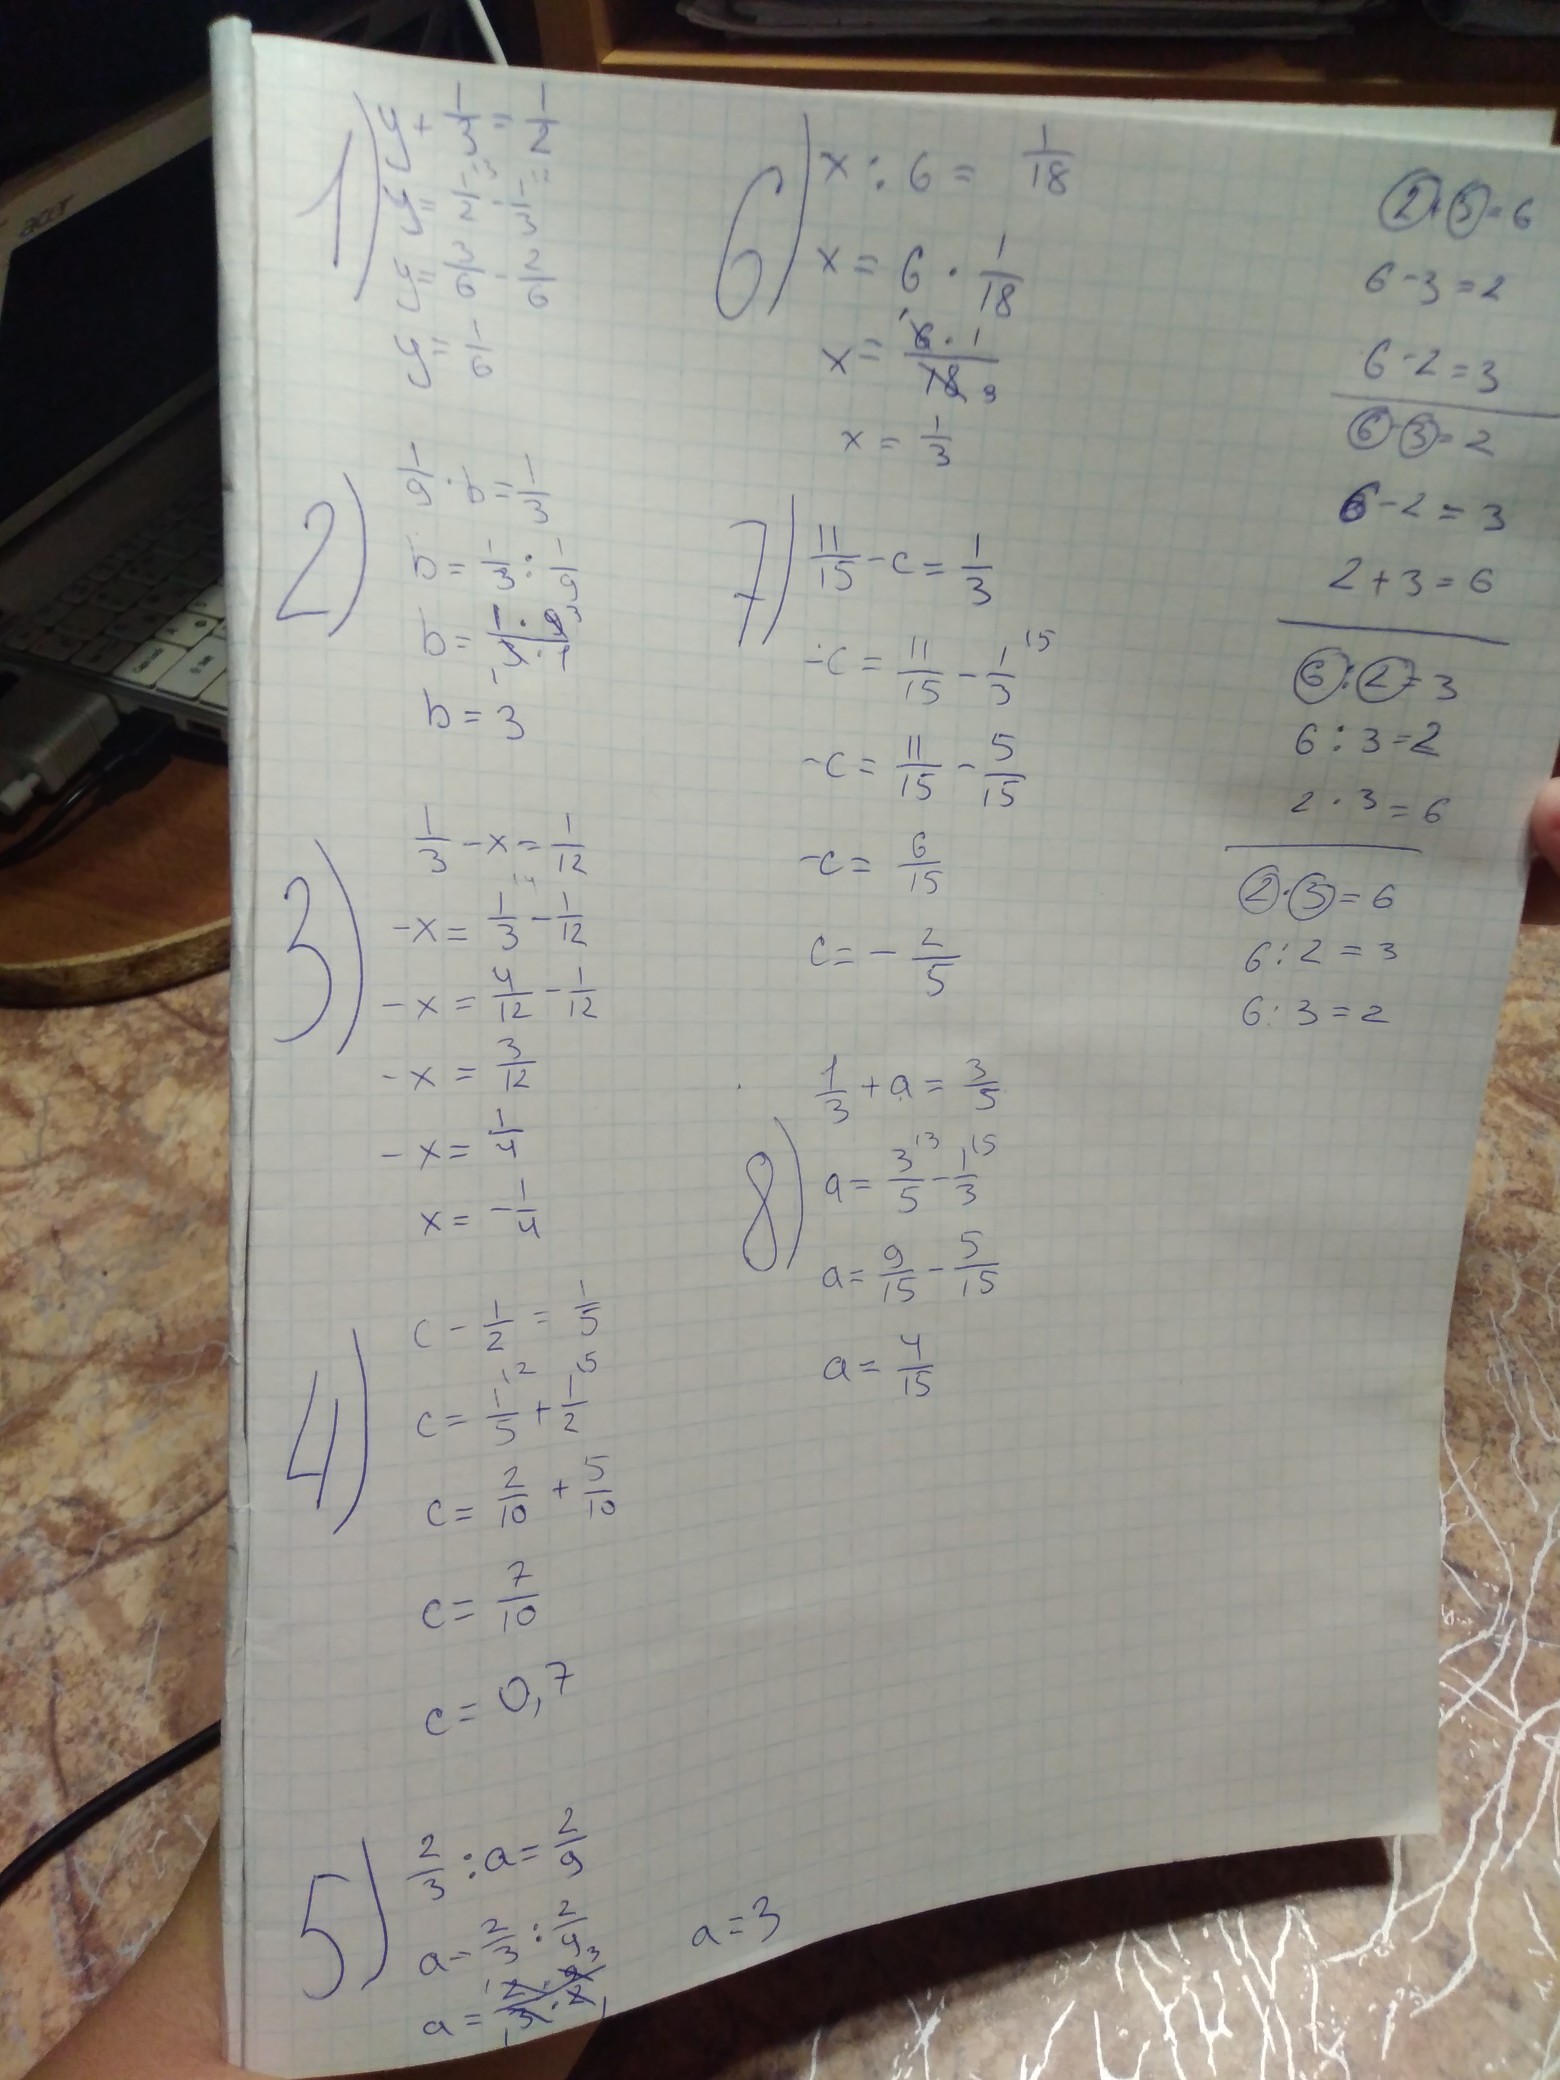 1) y + 1/3 = 1/2
y = 1/2 - 1/3 =
y = 3/6 - 2/6
y = 1/6
2) 1/9 · b = 1/3
b = 1/3 : 1/9
b = 1·9/3·1
b = 3
3) 1/3 - x = 1/12
-x = 1/3 - 1/12
-x = 4/12 - 1/12
-x = 3/12
-x = 1/4
x = -1/4
4) c - 1/2 = 1/5
c = 1/5 + 1/2
c = 2/10 + 5/10
c = 7/10
c = 0,7
5) 2/3 : a = 2/9
a = 2/3 : 2/9
a = 2·9/3·2
a = 3
6) x : 6 = 1/18
x = 6 · 1/18
x = 6·1/18
x = 1/3
7) 11/15 - c = 1/3
-c = 11/15 - 1/3
-c = 11/15 - 5/15
-c = 6/15
c = - 2/5
8) 1/3 + a = 3/5
a = 3/5 - 1/3
a = 9/15 - 5/15
a = 4/15
2+3=6
6-3=2
6-2=3
6-3=2
6-2=3
2+3=6
6:2=3
6:3=2
2·3=6
2·3=6
6:2=3
6:3=2
acer